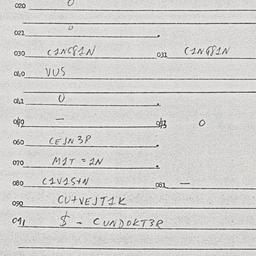 020 0
021 0
030 C1NC81N 031 C1NG81N
040 VUS
041 0
— 0
060 CEJN3R
070 M1T = 1N
080 C1V1S+N 081 —
090 CU+VEJT1K
091 $ - CUNDOKT3R